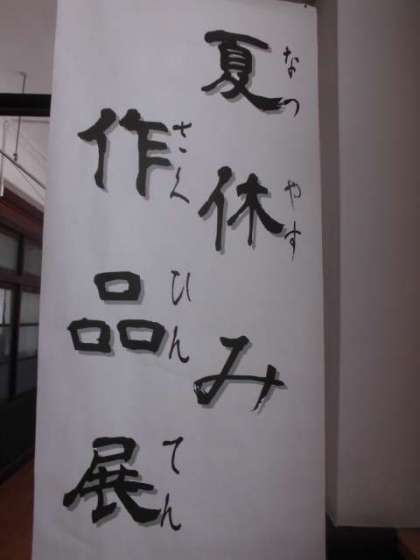 夏休み
なつやす
作品展
さくひんてん